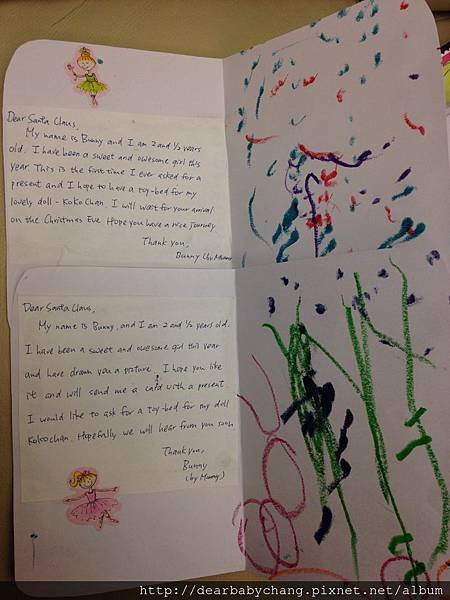 Dear Santa Claus,
My name is Bunny and I am 2 and ½ years
old. I have been a sweet and awesome girl this
year. This is the first time I ever asked for a
present and I hope to have a toy-bed for my
lovely doll - KoKo Chan. I will wait for your arrival
on the Christmas Eve. Hope you have a nice journey.
Thank you,
Bunny (by Mummy)
Dear Santa Claus,
My name is Bunny, and I am 2 and ½ years old.
I have been a sweet and awesome girl this year
and have drawn you a picture. I hope you like
it and will send me a card with a present.
I would like to ask for a toy-bed for my doll
Kokochan. Hopefully we will hear from you soon
Thank you,
Bunny
(by Mummy)
http://dearbabychang.pixnet.net/album